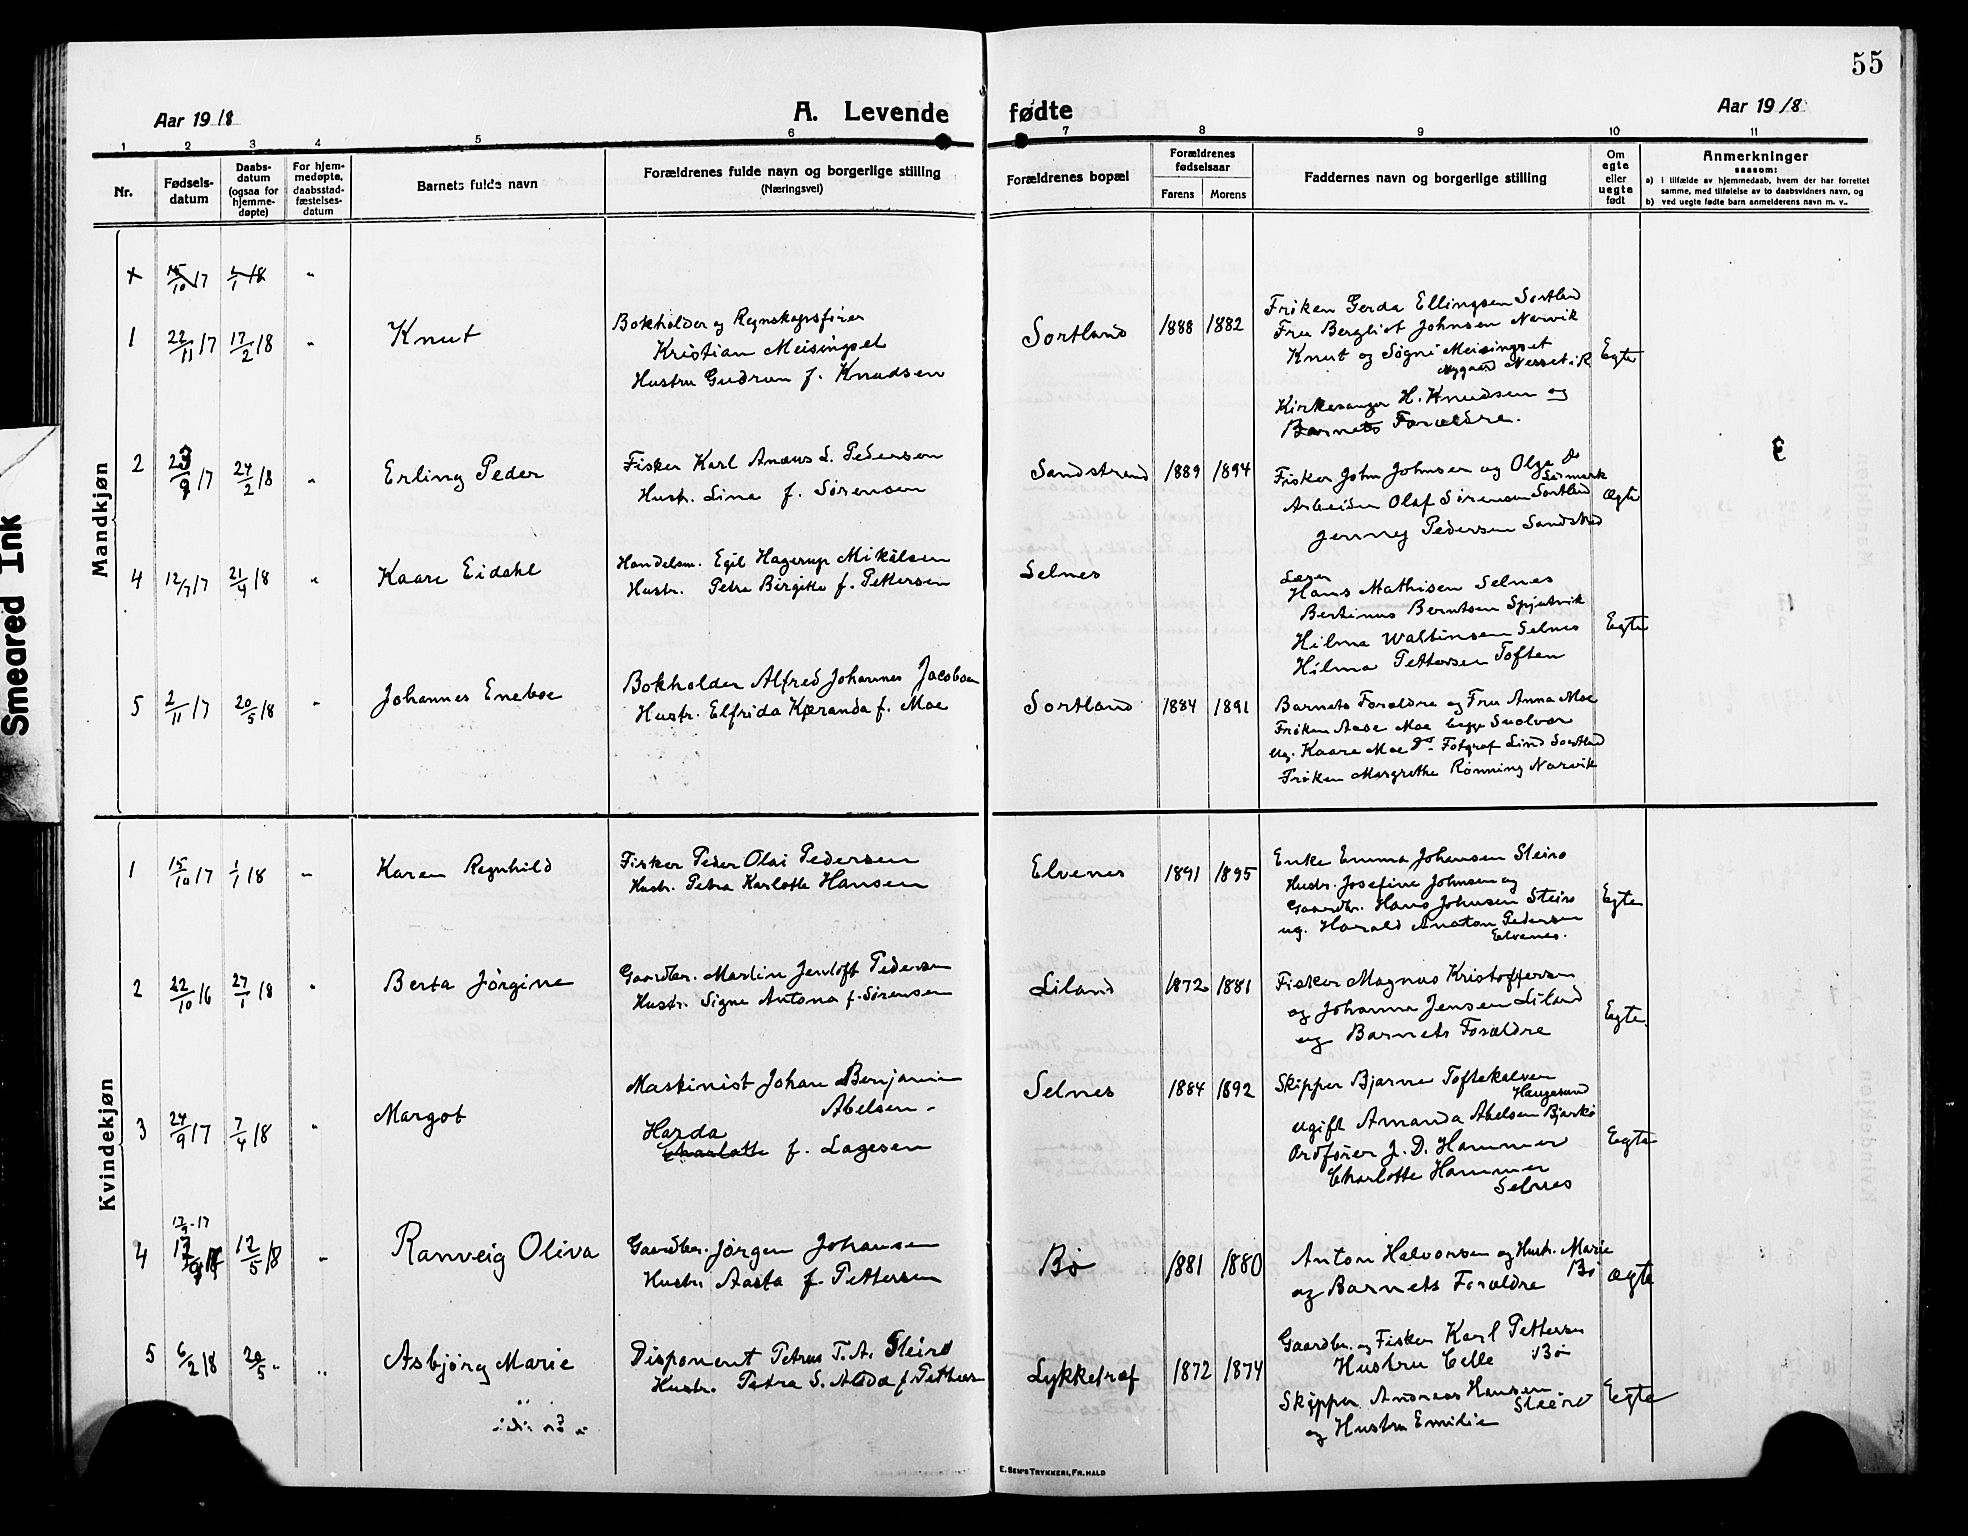 55
Aar 1918
A. Levende fødte
Aar 1918
1 2 3 4 5 6 7 8 9 10 11
Nr.
Fødsels-
datum
Daabs-
datum
(ogsaa for
hjemme-
døpte)
For hjem-
medøpte,
daabsstad-
fæstelses-
datum
Barnets fulde navn
Forældrenes fulde navn og borgerlige stilling
(Næringsvei)
Forældrenes bopæl
Forældrenes
fødselsaar
Farens Morens
Faddernes navn og borgerlige stilling
Om
egte
eller
uegte
født
Anmerkninger
saasom:
a) i tilfælde av hjemmedaab, hvem der har forrettet
samme, med tilføielse av to daabsvidners navn, og
b) ved uegte fødte barn anmelderens navn m. v..
Smeared Ink
Mandkjøn
x 15/10 17 1/1 18 "
1 22/11 17 17/2 18 "
Knut
Bokholder og Regnskapsfører
Kristian Meisingset
Hustru Gudrun f. Knudsen
Sortland 1888 1882
Frøken Gerda Ellingsen Sortland
Fru Bergliot Johnsen Narvik
Knut og Søgni Meisingset
Nygaard Nesset
Kirkesanger H. Knudsen og
Barnets Forældre.
Egte
2 23/9 17 24/2 18 "
Erling Peder
Fisker Karl Anæus L. Pedersen
Hustr. Lina f. Sørensen
Sandstrand 1889 1894
Fisker John Johnsen og Olga do
Arbeider Olaf Sørensen Sortland
Jenny Pedersen Sandstrad
Ægte
4 12/7 17 21/4 18 "
Kaare Eidahl
Handelsm. Egil Hagerup Mikalsen
Hustr. Petra Birgitte f. Pettersen
Selnes
Hans Mathisen Selnes
Bertinus Berntsen
Hilma Waltinsen Selnes
Hilma Pettersen Toften
Egte
5 2/11 17 20/5 18 "
Johannes Eneboe
Bokholder Alfred Johannes Jacobsen
Hustr. Elfrida Kjæranda f. Moe
Sortland 1884 1891
Barnets Forældre og Fru Anna Moe
Frøken Aase Moe begge Svolvær
ug. Kaare Moe do - Fotgraf Lind Sortland
Frøken Margrethe Rønning Narvik
Kvindekjøn
1 15/10 17 1/1 18 "
Karen Regnhild
Fisker Peder Olai Pedersen
Hustr. Petra Karlotte Hansen
Elvenes 1891 1895
Enke Emma Johansen Steiro
Hustr. Josefine Johnsen og
Gaardbr. Hans Johnsen Steiro
ug. Harald Anaton Pedersen
Elvenes.
Egte
2 22/10 16 27/1 18 "
Berta Jørgine
Gaardbr. Martin Jentoft Pedersen
Hustr. Signe Antona f. Sørensen
Liland 1872 1881
Fisker Magnus Kristoffersen
og Johanna Jensen Liland
og Barnets Forældre
Egte.
3 24/9 17 7/4 18 "
Margot
Maskinist Johan Benjamin
Abelsen -
Harda
Charlotte f. Lagesen
Selnes 1884 1892
Skipper Bjarne Toftekalven
Haugesund
ugift Amanda Abelsen Bjarkø
Ordfører J. D. Hammer
Charlotte Hammer
Selnes
Egte
4 12/9 17 12/5 18 "
Ranveig Oliva
Gaardbr. Jørgen Johansen
Hustr. Aasta f. Pettersen
Bø 1881 1880
Anton Halvorsen og Hustr. Marie
Bø
og Barnets Forældre
Ægte
5 6/2 18 20/5 "
Asbjørg Marie
Disponent Petrus T. A. Steiro
Hustr. Petra S. Alida f. Pettersen
Lykketraf 1872 1874
Gaardbr. og Fisker Karl Pettersen
Hustru Celle Bø
Skipper Andreas Hansen
Steiro
og Hustru Emilie
Egte
E. SEM'S TRYKKERI, FR.HALD